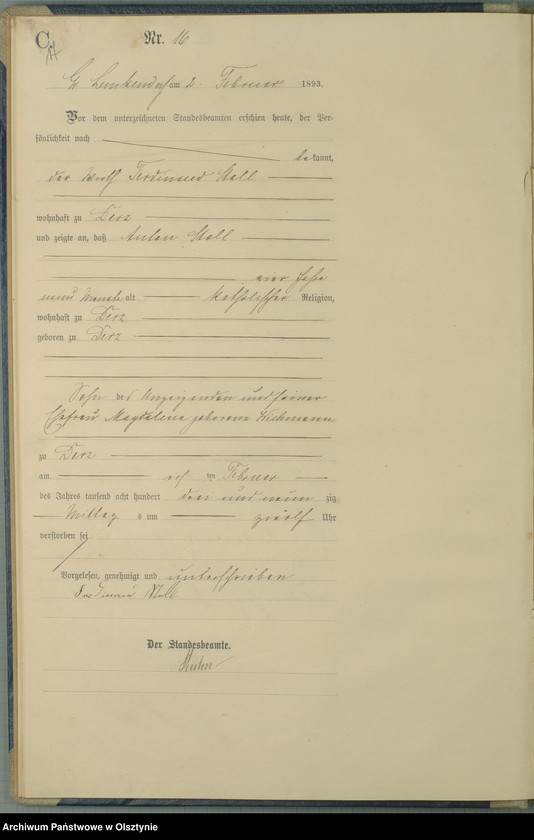 C
Nr. 16
Gr. Lemkendorf am 2. Februar 1893.
Vor dem unterzeichneten Standesbeamten erschien heute, der Per-
sönlichkeit nach
bekannt,
der Wirth Ferdinand Moll
wohnhaft zu Derz
und zeigte an, daß Anton Moll
vier Jahre
neun Monate alt katholischer Religion,
wohnhaft zu Derz
geboren zu Derz
Sohn des Anzeigenden und seiner
Ehefrau Magdalena geborene Wichmann
zu Derz
am Februar
des Jahres tausend acht hundert drei und neun zig
Mittags um zwölf Uhr
verstorben sei
Vorgelesen, genehmigt und unterschrieben
Ferdinand Moll
Der Standesbeamte.
Archiwum Państwowe w Olsztynie